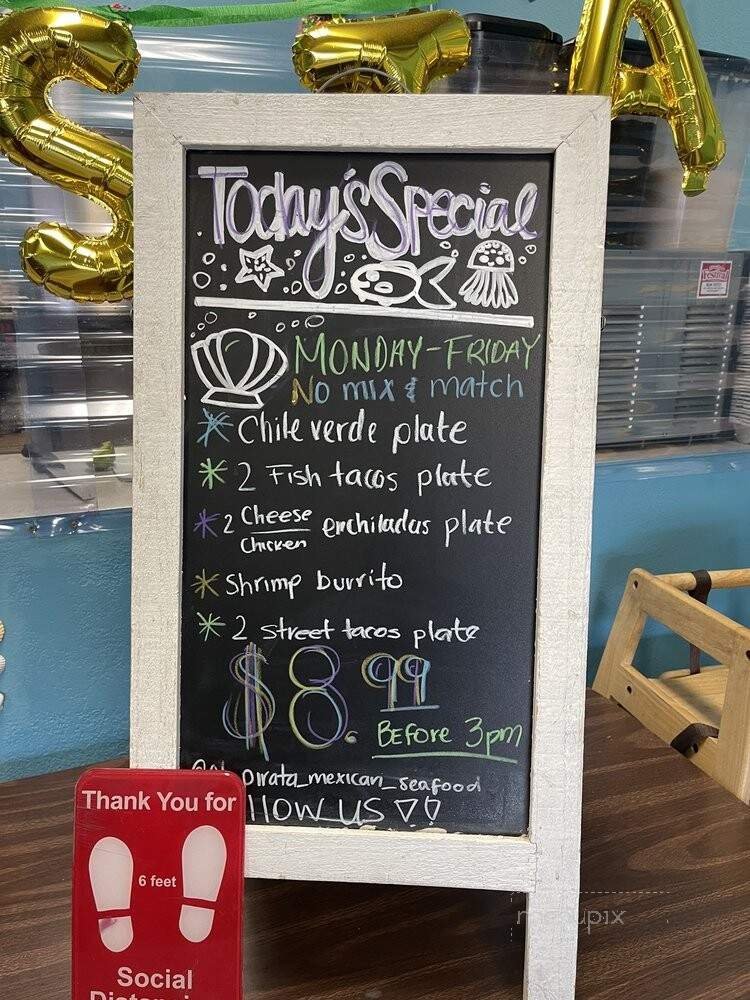 STA
Today's Special
MONDAY-FRIDAY
No mix & match
* Chile verde plate
* 2 Fish tacos plate
* 2 Cheese enchiladas plate
Chicken
* Shrimp burrito
* 2 street tacos plate
$8.99
BEFORE 3pm
pirata_mexican_seafood
llow us
Thank You for
6 feet
Social
menupix